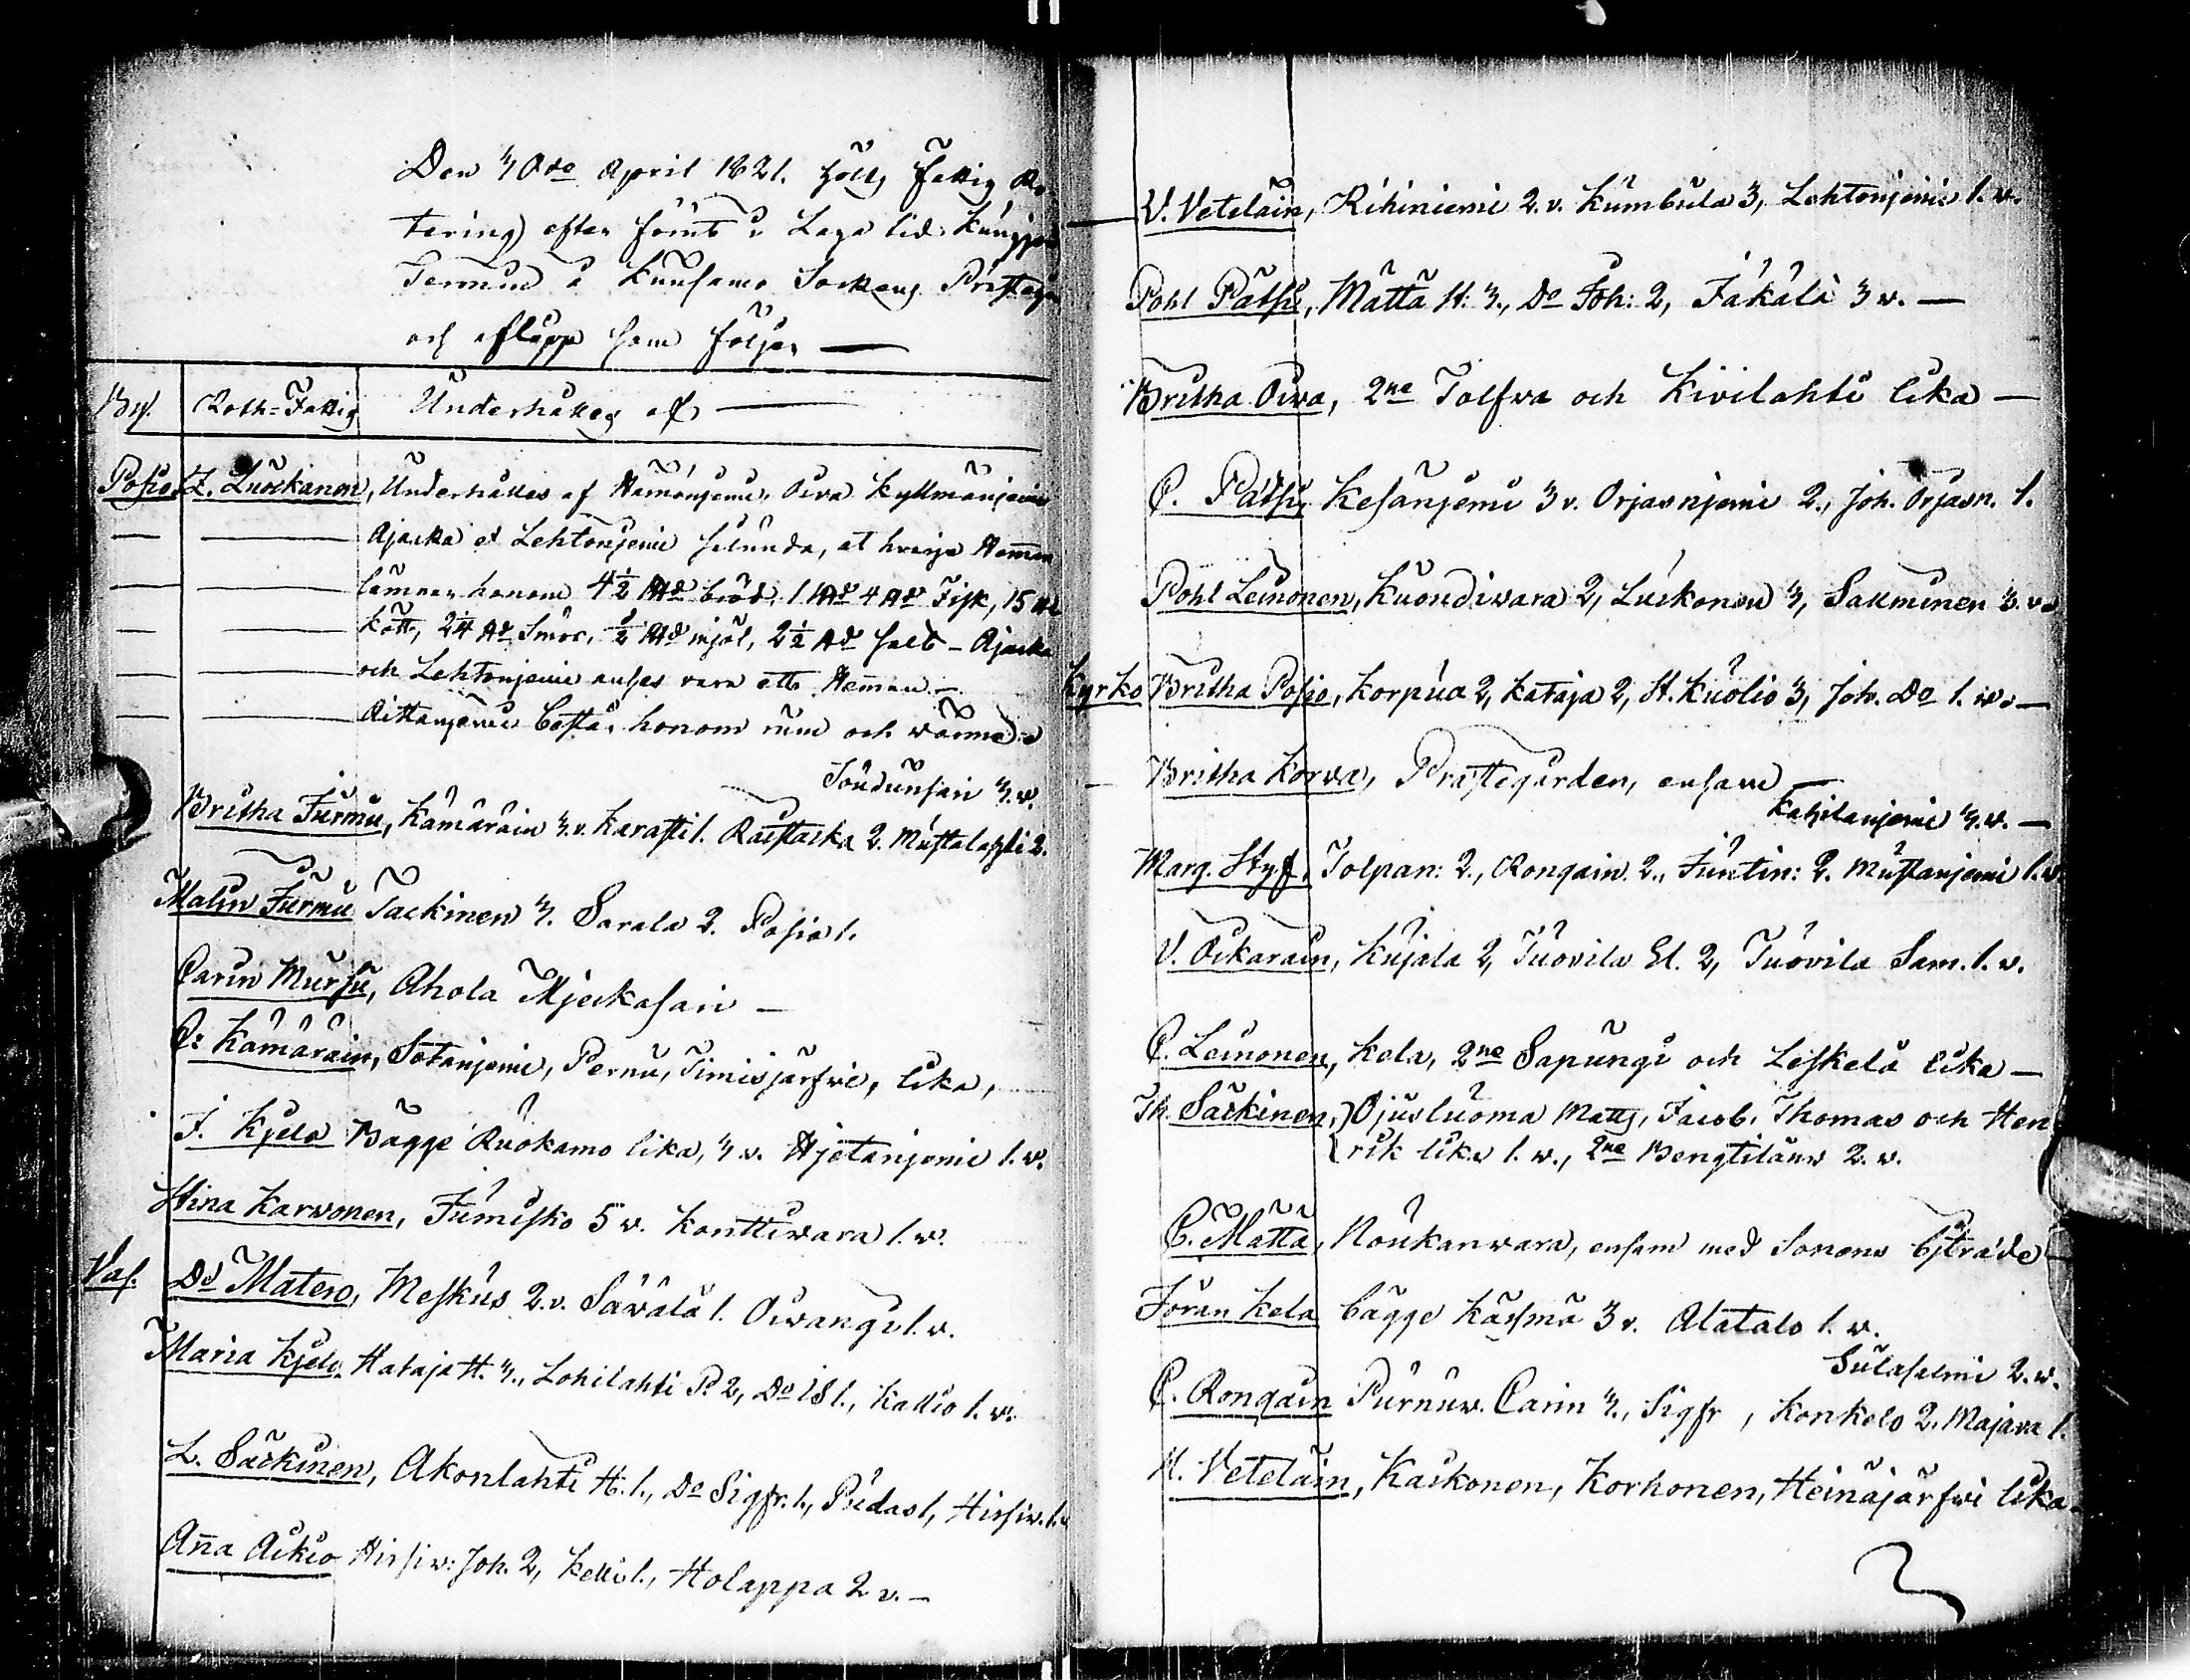 Den 30de April 1821. hölls Fattig Ro-
tering efter förut i Laga tid kungjord
Termin i Kuusamo Sockens Prästegård
och aflopp som följer —
By. Roth-Fattig Underhålles af —
Posio. Z. Luockanen, Underhålles af Hämönjemi, Oiva Kyllmänjemi
Ajacka et Lehtonjemi sålunda, at hvarje Hemman
lämnar honom 4½ bröd, 1 4 Fisk, 15
kött, 2¼ Smör, ½ mjöl, 2½ salt — Ajacka
och Lehtonjemi anses vara ett Hemman —
Aittanjemi består honom rum och värme —
Soudunsari 3.v.
Britha Furmu, Kämäräin 3.v. Karasti 1. Raistacka 2. Mustalahti 2.
Malin Furmu Tackinen 3. Sarala 2. Posio 1.
Carin Mursu, Ahola Mjeckasari —
C: Kämäräin, Sotanjemi, Pernu, Timisjärfwi, lika,
J. Kjela Bägge Ruokamo lika, 3 v. Hjetanjemi 1. v.
Stina Karwonen, Jumisko 5 v. Konttiwara 1. v.
Vas. Dd Matero, Meskus 2. v. Säwälä 1. Oiwangi 1. v.
Maria Kjela. Hataja H. 3., Lohilahti P. 2, Do IS 1., Kallio 1. v.
L. Säckinen, Akonlahti H. 1., Do Sigfr. 1., Pudas 1, Hirsiw. 1. v
Anna Aikio Hirsiw: Joh. 2, Kelli 1., Holappa 2 v. —
V. Veteläin, Rihiniemi 2. v. Kumbula 3, Lehtonjemi 1. v.
Pohl Pätsi, Mättä H: 3., Do Joh: 2, Jäkälä 3 v. —
Britha Oiva, 2ne Tolfwa och Kivilahti lika —
C. Pätsi, Kesänjemi 3 v. Orjasnjemi 2., Joh. Orjasn. 1.
Pohl Leinonen, Kuondiwara 2, Luckonen 3, Salminen 3. v.
Kyrko Britha Posio, Korpua 2, Kataja 2, H. Kuolio 3, Joh. Do 1. w. —
Britha Korva, Prästegården, ensam —
Kahilanjemi 3. v. —
Marg. Styf, Tolpan: 2., Rongain. 2., Juntin: 2. Mustanjemi 1. v.
V. Oikarain, Kujala 2, Tuovila El. 2, Tuovila Sam. 1. v.
C. Leinonen, Kela, 2ne Sapungi och Leskelä lika —
Th. Säckinen, Ojusluoma Matts, Jacob, Thomas och Hen
rik lika 1. w., 2ne Bengtiläns 2. v.
C. Mättä, Noukanwara, ensam med Sonens biträde —
Jöran Kela bägge Käsmä 3 v. Alatalo 1. w.
Sulaselmi 2. w.
C. Rongain Purnuw. Carin 3., Sigfr , Konkelo 2. Majava 1.
M. Veteläin, Kaikonen, Korhonen, Heinäjärfwi lika.